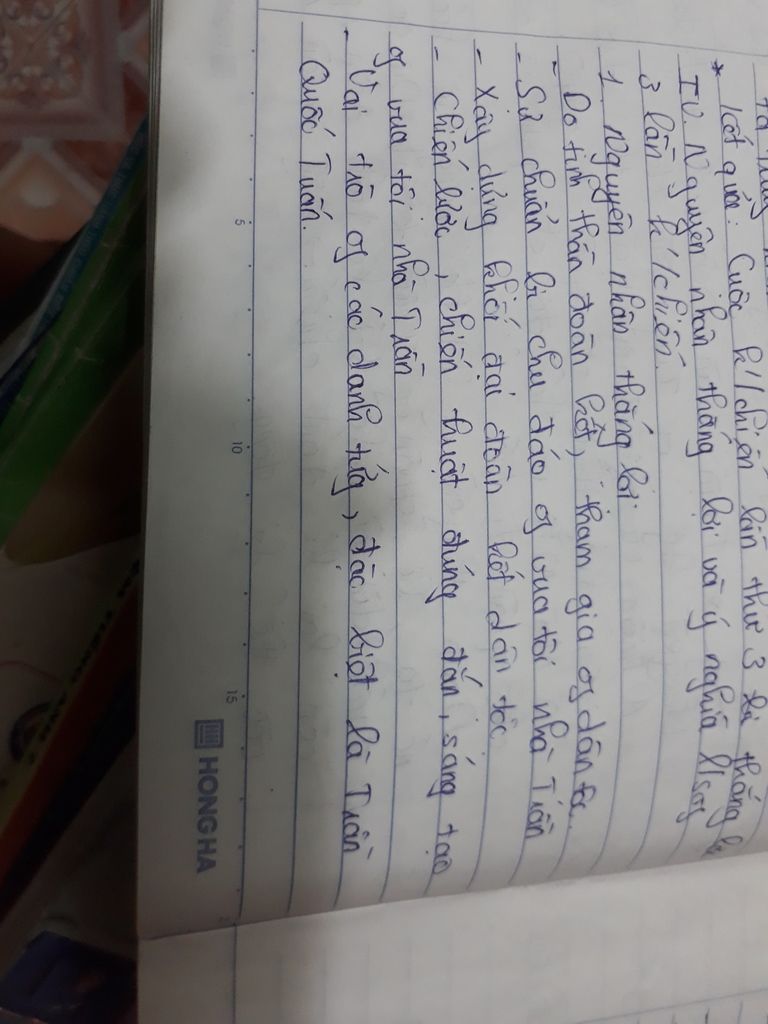 * Kết quả: Cuộc k/chiến lần thứ 3 thắng
IV Nguyên nhân thắng lợi và ý nghĩa l/sử of
3 lần k/chiến.
1 Nguyên nhân thắng lợi
- Do tinh thần đoàn kết, tham gia of dân tộc.
- Sự chuẩn bị chu đáo of vua tôi nhà Trần
- Xây dựng khối đại đoàn kết dân tộc
- Chiến lược, chiến thuật đúng đắn, sáng tạo
of vua tôi nhà Trần
- Vai trò of các danh tướng, đặc biệt là Trần
Quốc Tuấn.
5
10
15
HONG HA